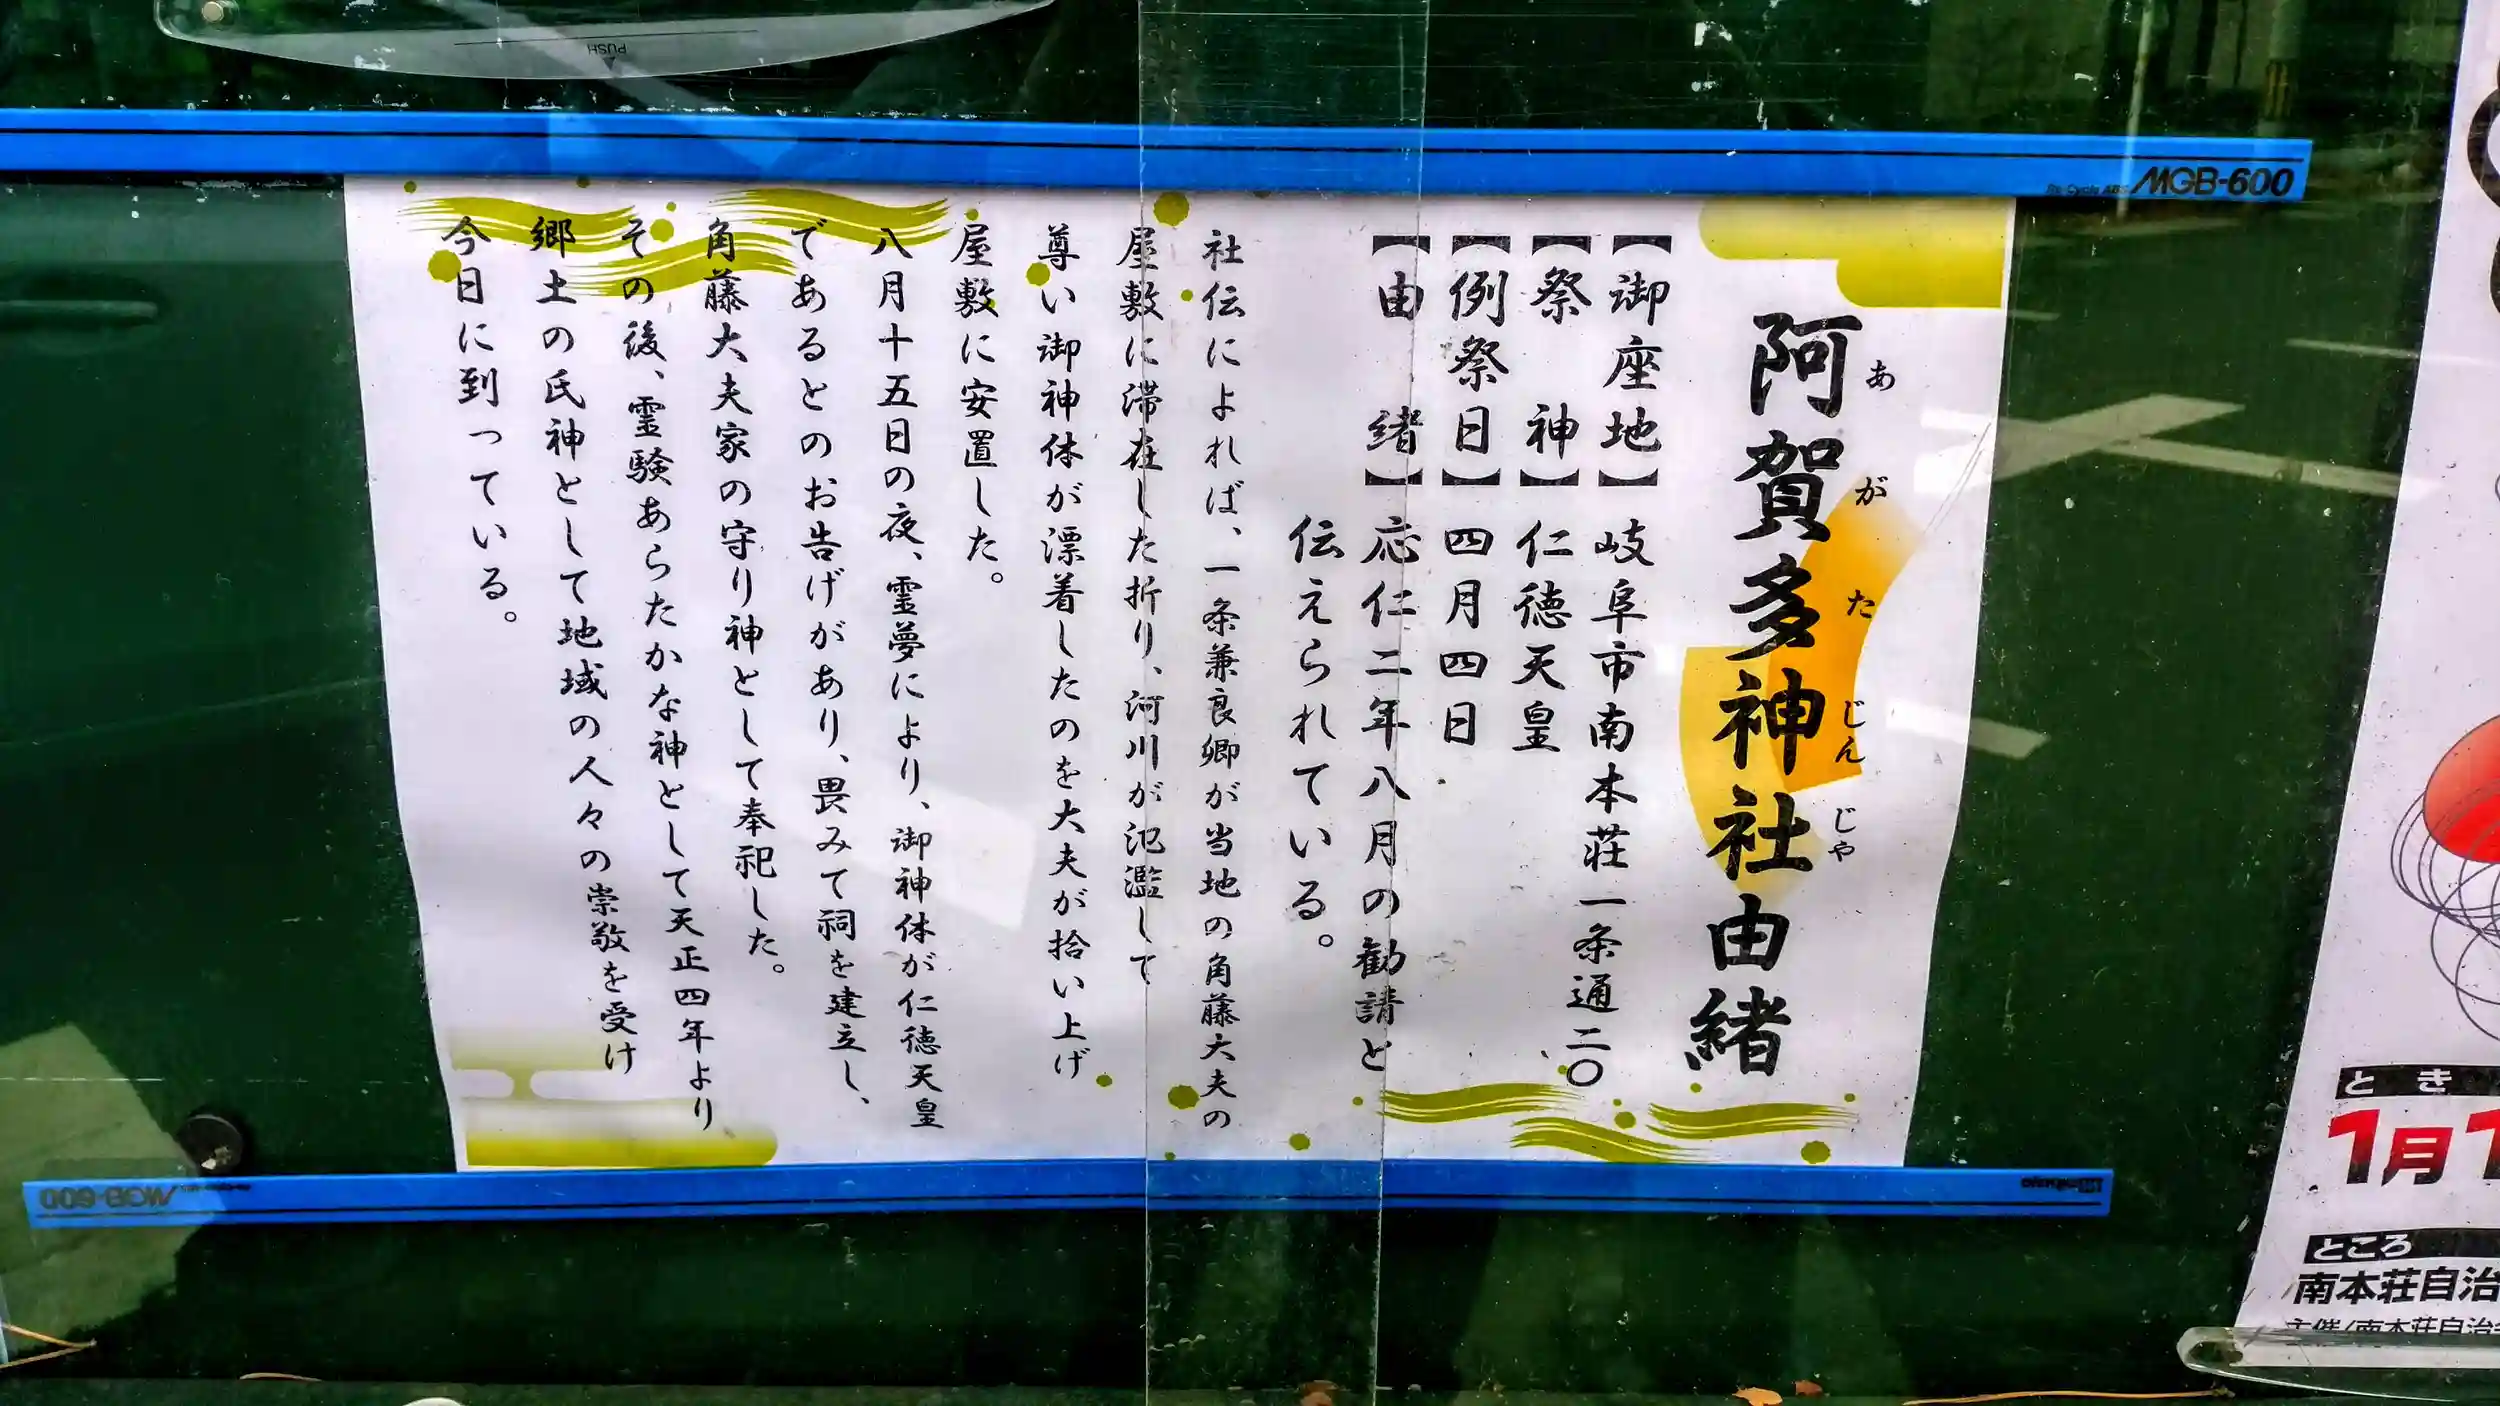 阿賀多神社由緒
あがたじんじゃ
【御座地】岐阜市南本荘一条通二〇
【祭神】仁徳天皇
【例祭日】四月四日
【由緒】応仁二年八月の勧請と
伝えられている。
社伝によれば、一条兼良卿が当地の角藤大夫の
屋敷に滞在した折り、河川が氾濫して
尊い御神体が漂着したのを大夫が拾い上げ
屋敷に安置した。
八月十五日の夜、霊夢により、御神体が仁徳天皇
であるとのお告げがあり、畏みて祠を建立し、
角藤大夫家の守り神として奉祀した。
その後、霊験あらたかな神として天正四年より
郷土の氏神として地域の人々の崇敬を受け
今日に到っている。
MGB-600
MGB-600
PUSH
とき
1月1
ところ
南本荘自治
主催/南本荘自治